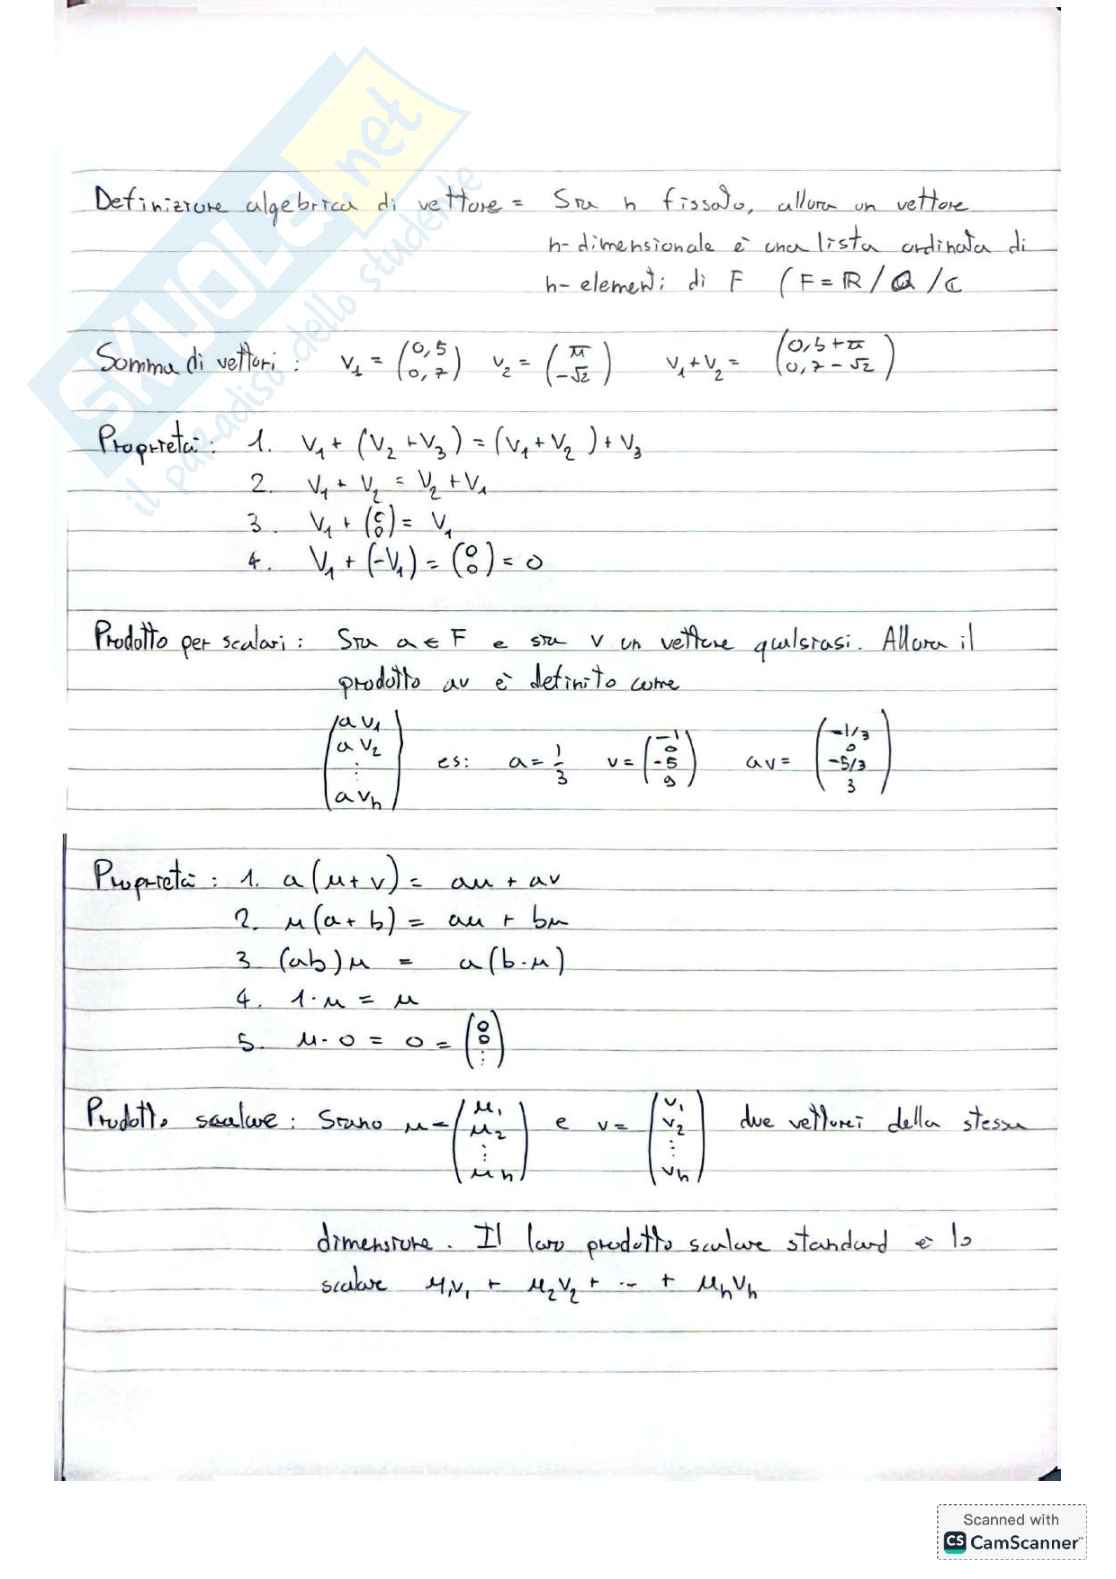 SKUOLA.net
il paradiso dello studente
Definizione algebrica di vettore = Sia n fissato, allora un vettore
n-dimensionale è una lista ordinata di
n-elementi di F (F = ℝ / ℚ / ℂ
Somma di vettori : v₁ = (0,5 0,7) v₂ = (π -√2) v₁+v₂ = (0,5+π 0,7-√2)
Proprietà : 1. v₁ + (v₂ + v₃) = (v₁ + v₂) + v₃
2. v₁ + v₂ = v₂ + v₁
3. v₁ + (0 0) = v₁
4. v₁ + (-v₁) = (0 0) = 0
Prodotto per scalari : Sia a ∈ F e sia v un vettore qualsiasi. Allora il
prodotto av è definito come
(av₁ av₂ ⋮ avn) es: a = 1/3 v = (-1 0 -5 9) av = (-1/3 0 -5/3 3)
Proprietà : 1. a(u + v) = au + av
2. u(a + b) = au + bu
3 (ab)u = a(b·u)
4. 1·u = u
5. u·0 = 0 = (0 0 ⋮)
Prodotto scalare : Siano u = (u₁ u₂ ⋮ un) e v = (v₁ v₂ ⋮ vn) due vettori della stessa
dimensione. Il loro prodotto scalare standard è lo
scalare u₁v₁ + u₂v₂ + ... + unvn
Scanned with
CS CamScanner